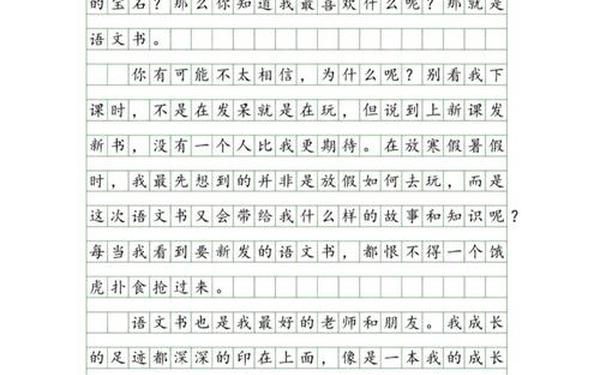 的宝石？那么你知道我最喜欢什么呢？那就是
语文书。
你有可能不太相信，为什么呢？别看我下
课时，不是在发呆就是在玩，但说到上新课发
新书，没有一个人比我更期待。在放寒假暑假
时，我最先想到的并非是放假如何去玩，而是
这次语文书又会带给我什么样的故事和知识呢？
每当我看到要新发的语文书，都恨不得一个饿
虎扑食抢过来。
语文书也是我最好的老师和朋友。我成长
的足迹都深深的印在上面，像是一本我的成长